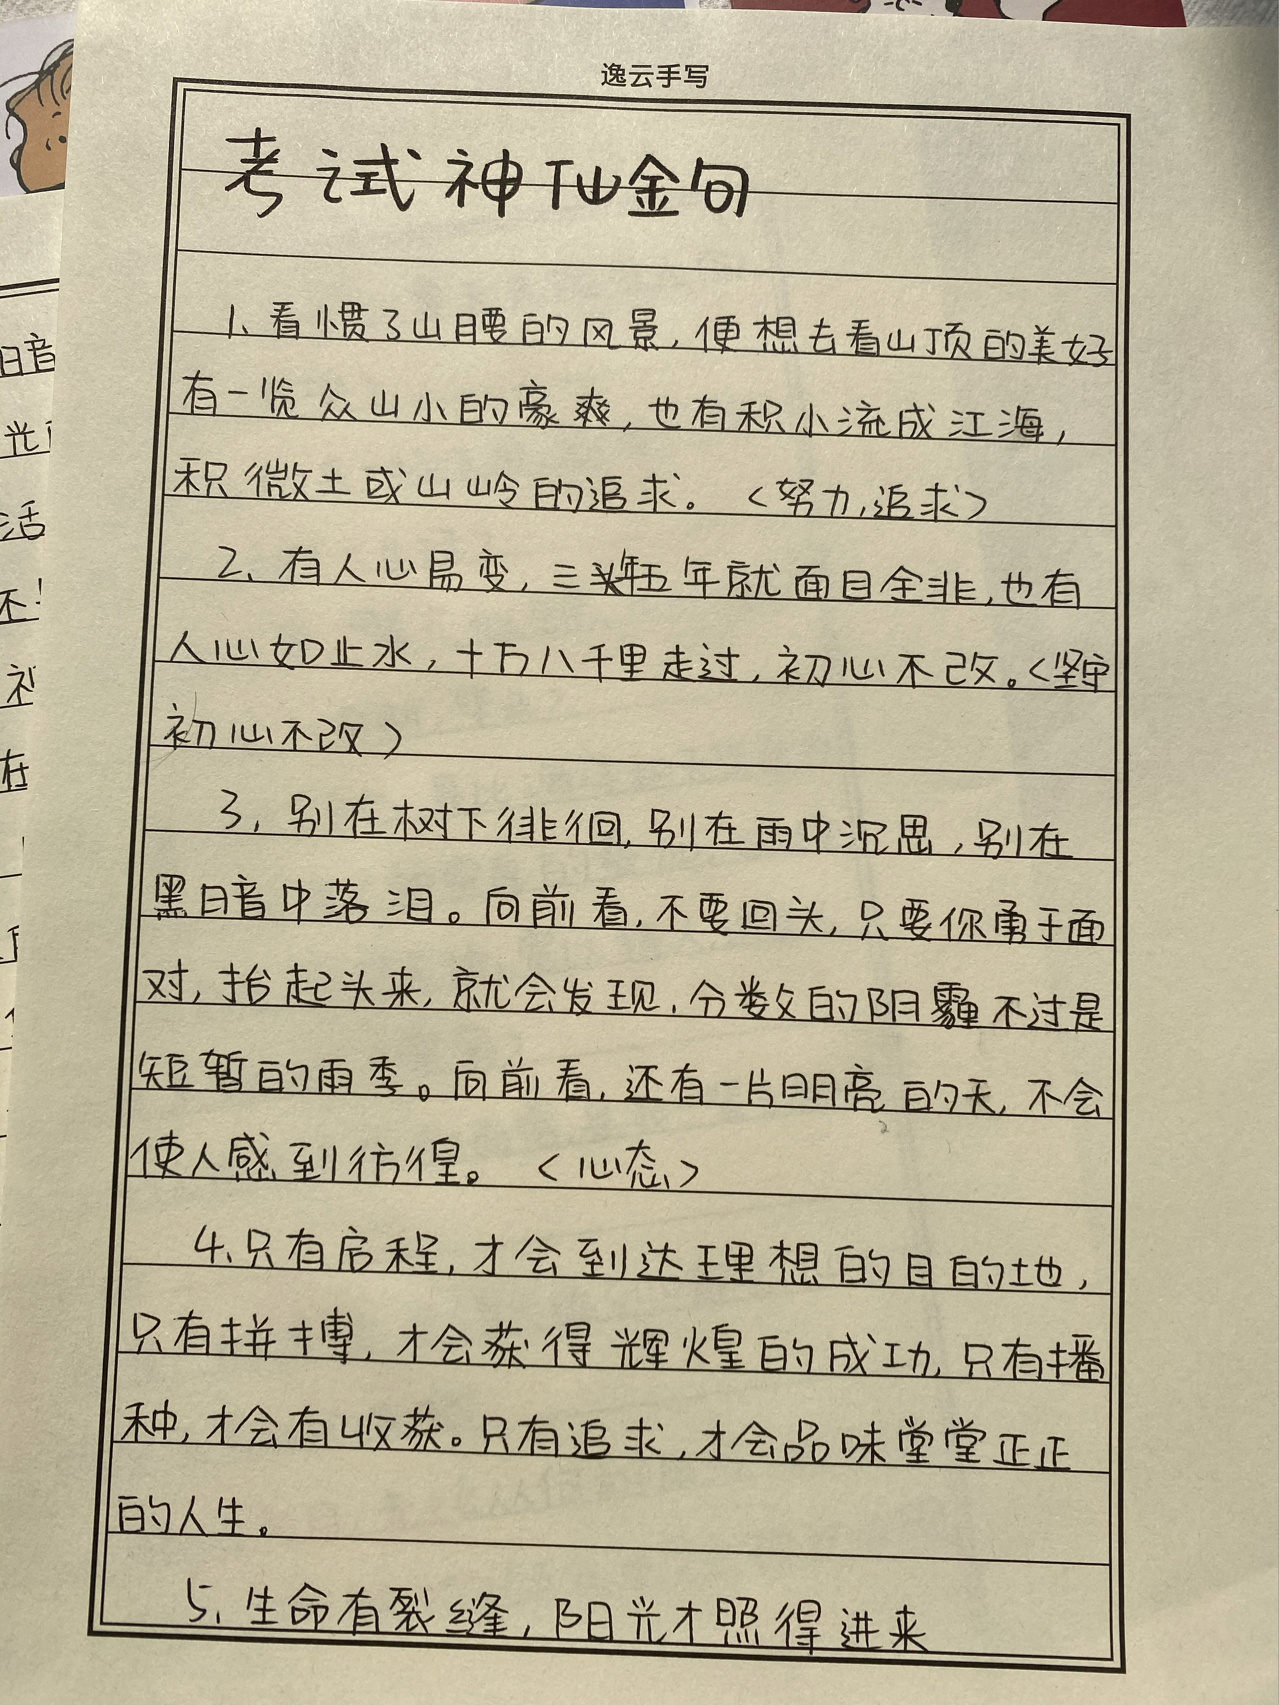 逸云手写
考试神仙金句
1、看惯了山腰的风景,便想去看山顶的美好
有一览众山小的豪爽,也有积小流成江海,
积微土或山岭的追求。<努力,追求>
2、有人心易变,三年五年就面目全非,也有
人心如止水,十万八千里走过,初心不改。<坚守
初心不改>
3,别在树下徘徊,别在雨中沉思,别在
黑暗中落泪。向前看,不要回头,只要你勇于面
对,抬起头来,就会发现,分数的阴霾不过是
短暂的雨季。向前看,还有一片明亮的天,不会
使人感到彷徨。<心态>
4、只有启程,才会到达理想的目的地,
只有拼搏,才会获得辉煌的成功,只有播
种,才会有收获。只有追求,才会品味堂堂正正
的人生。
5、生命有裂缝,阳光才照得进来
暗
光
活
不
在